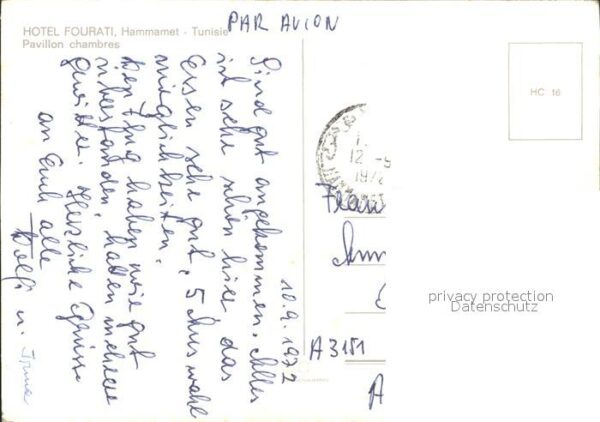 HOTEL FOURATI, Hammamet - Tunisie
Pavillon chambres
PAR AVION
HC 16
10.9.1972
Sind gut angekommen. Alles
ist sehr schön hier das
Essen sehr gut, 5 Auswahl
möglichkeiten.
Den Flug haben wir gut
überstanden, hatten mehrere
Gewitter. Herzliche Grüsse
an Euch alle
Wolfi u. Irma
12
197
Frau
A 3151
A
privacy protection
Datenschutz